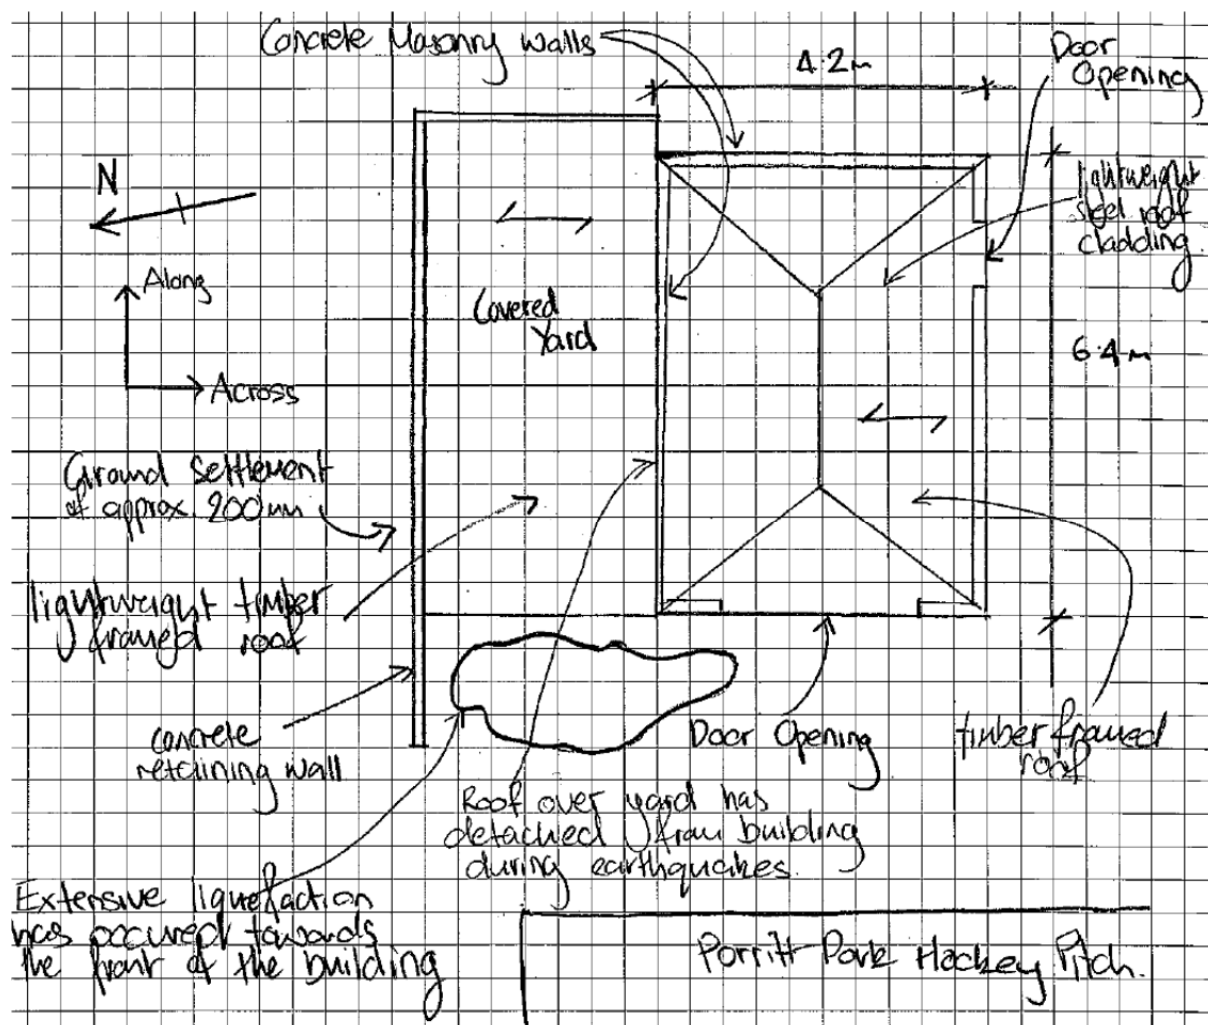 Concrete Masonry walls
4.2m
Door
Opening
N
lightweight
steel roof
cladding.
Along
Covered
Yard
6.4m
Across
Ground settlement
of approx. 200mm
lightweight timber
framed roof
concrete
retaining wall
Door Opening
timber framed
roof
Roof over yard has
detached from building
during earthquakes.
Extensive liquefaction
has occured towards
the front of the building
Porritt Park Hockey Pitch.